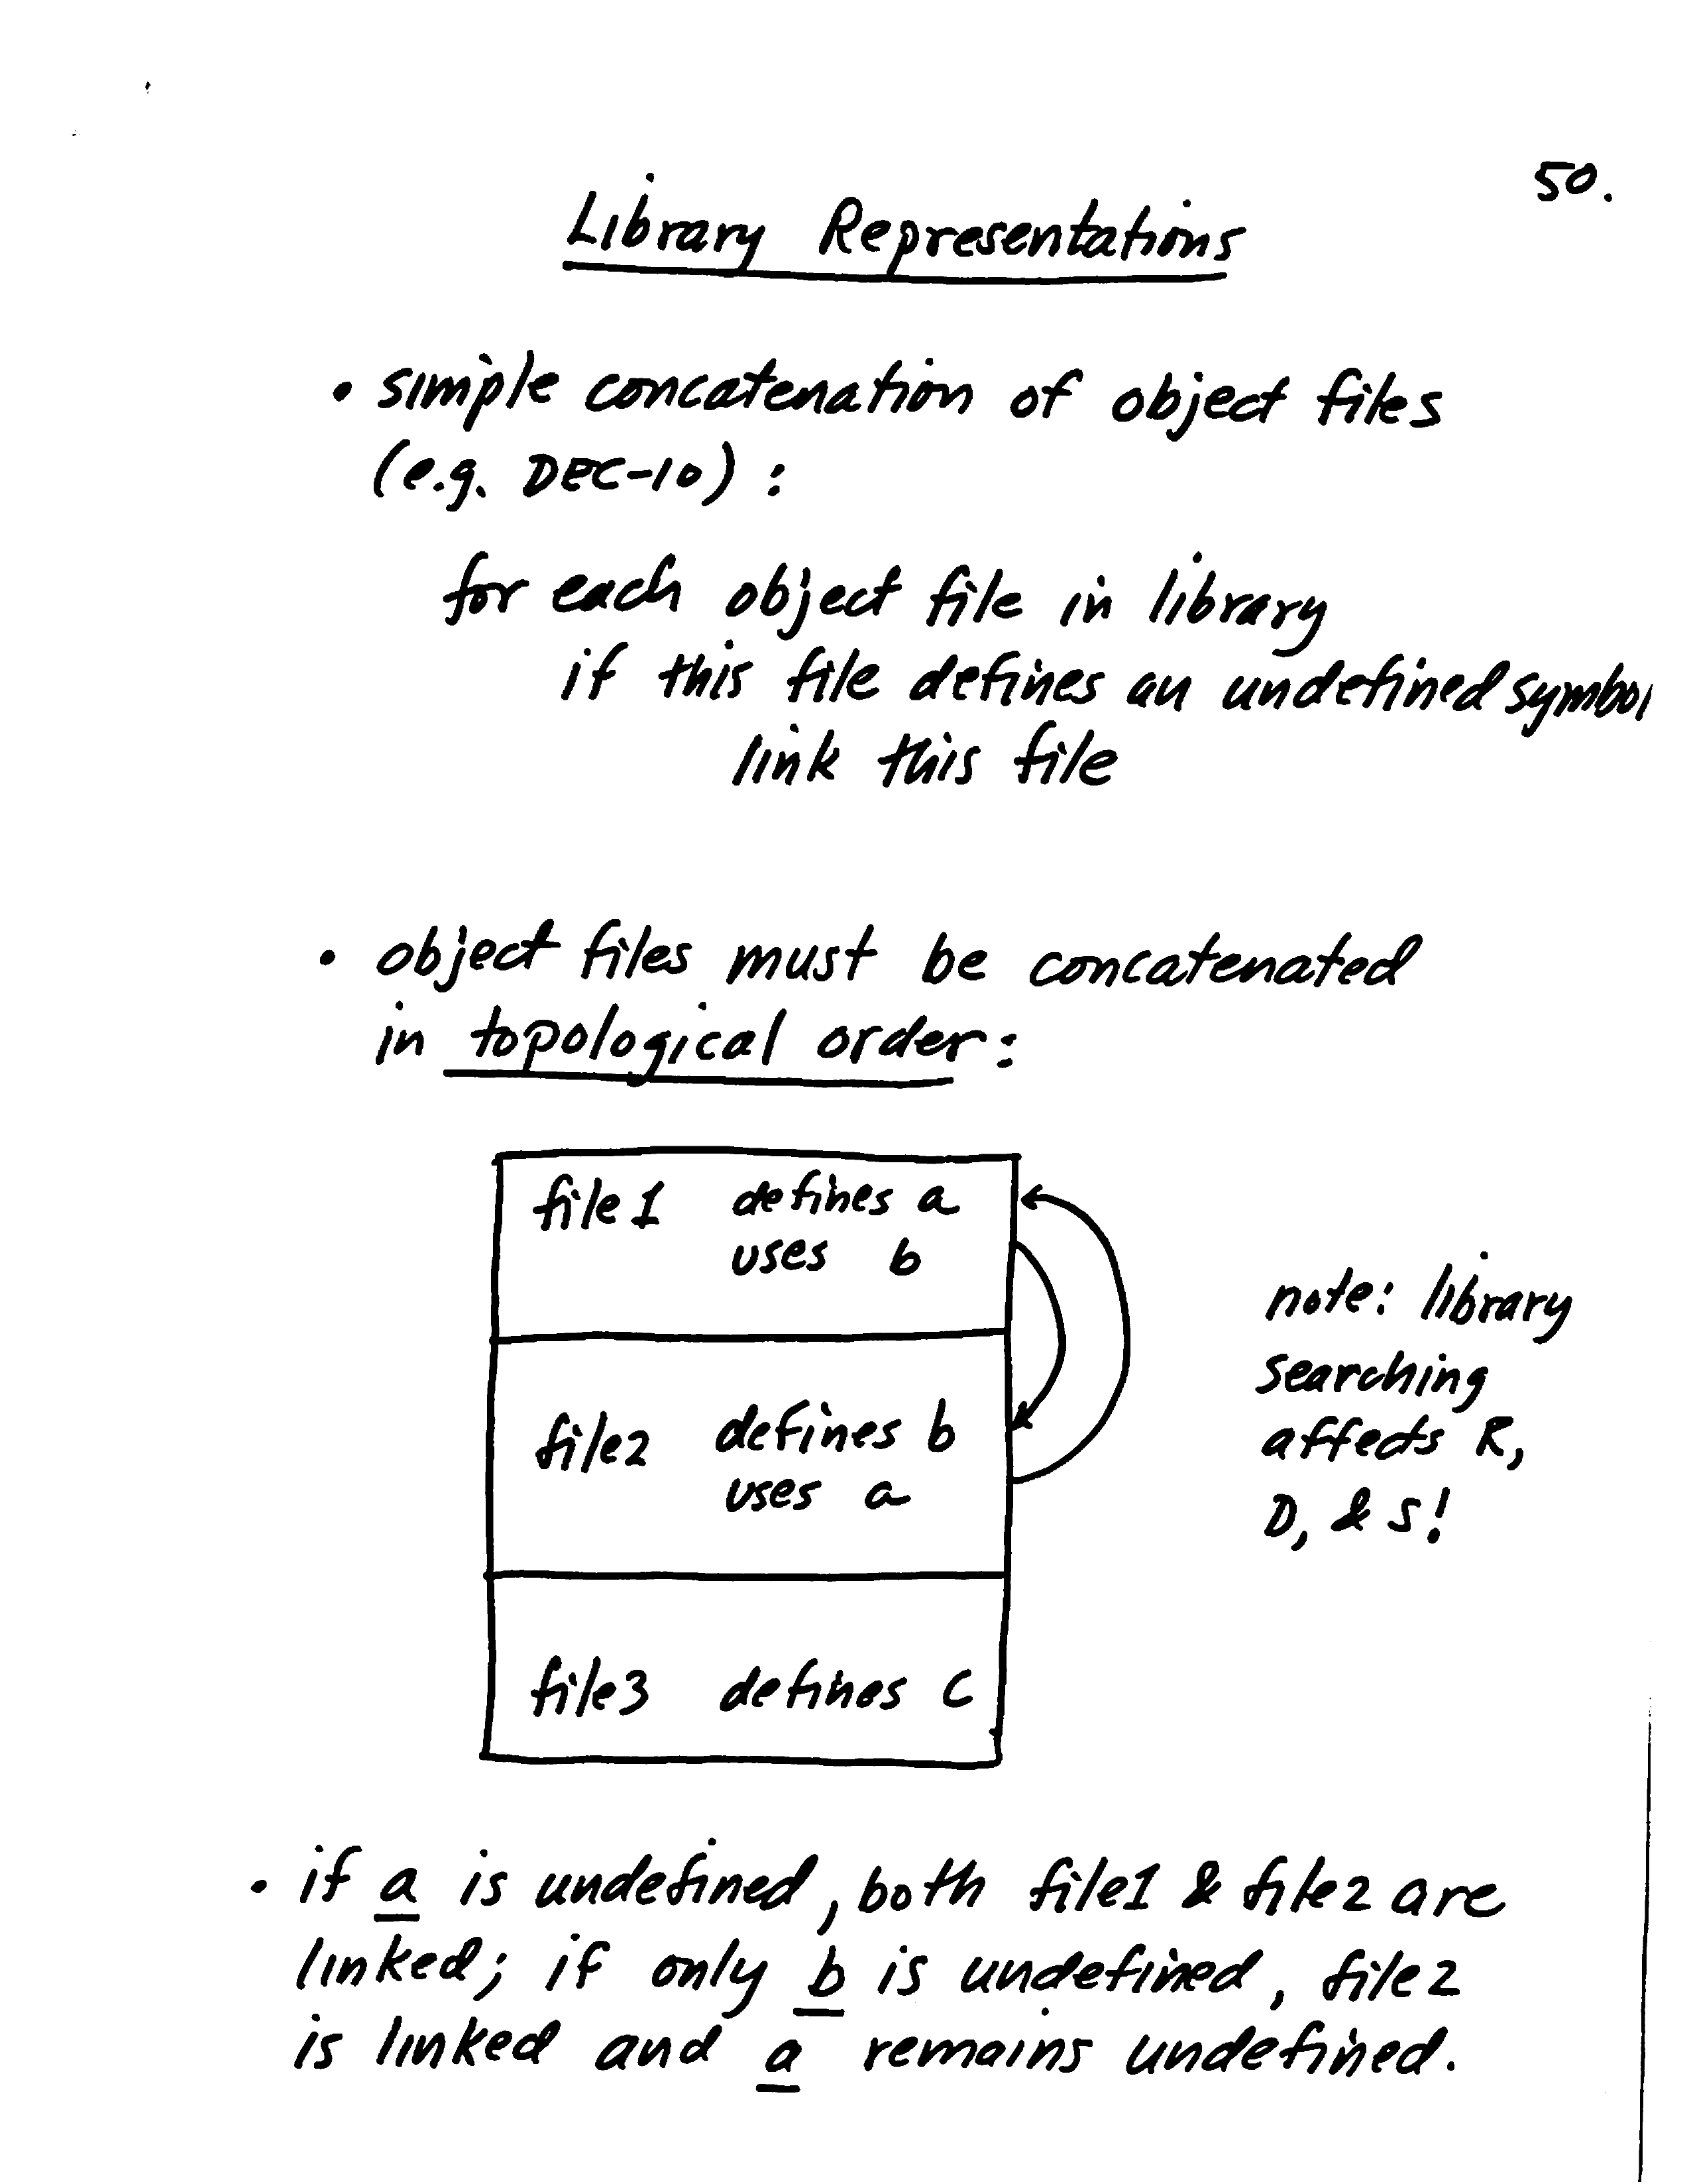 50.
Library Representations
• simple concatenation of object files
(e.g. DEC-10) :
for each object file in library
if this file defines an undefined symbol
link this file
• object files must be concatenated
in topological order:
file1 defines a
uses b
file2 defines b
uses a
file3 defines c
note: library
searching
affects R,
D, & S!
• if a is undefined, both file1 & file2 are
linked; if only b is undefined, file2
is linked and a remains undefined.